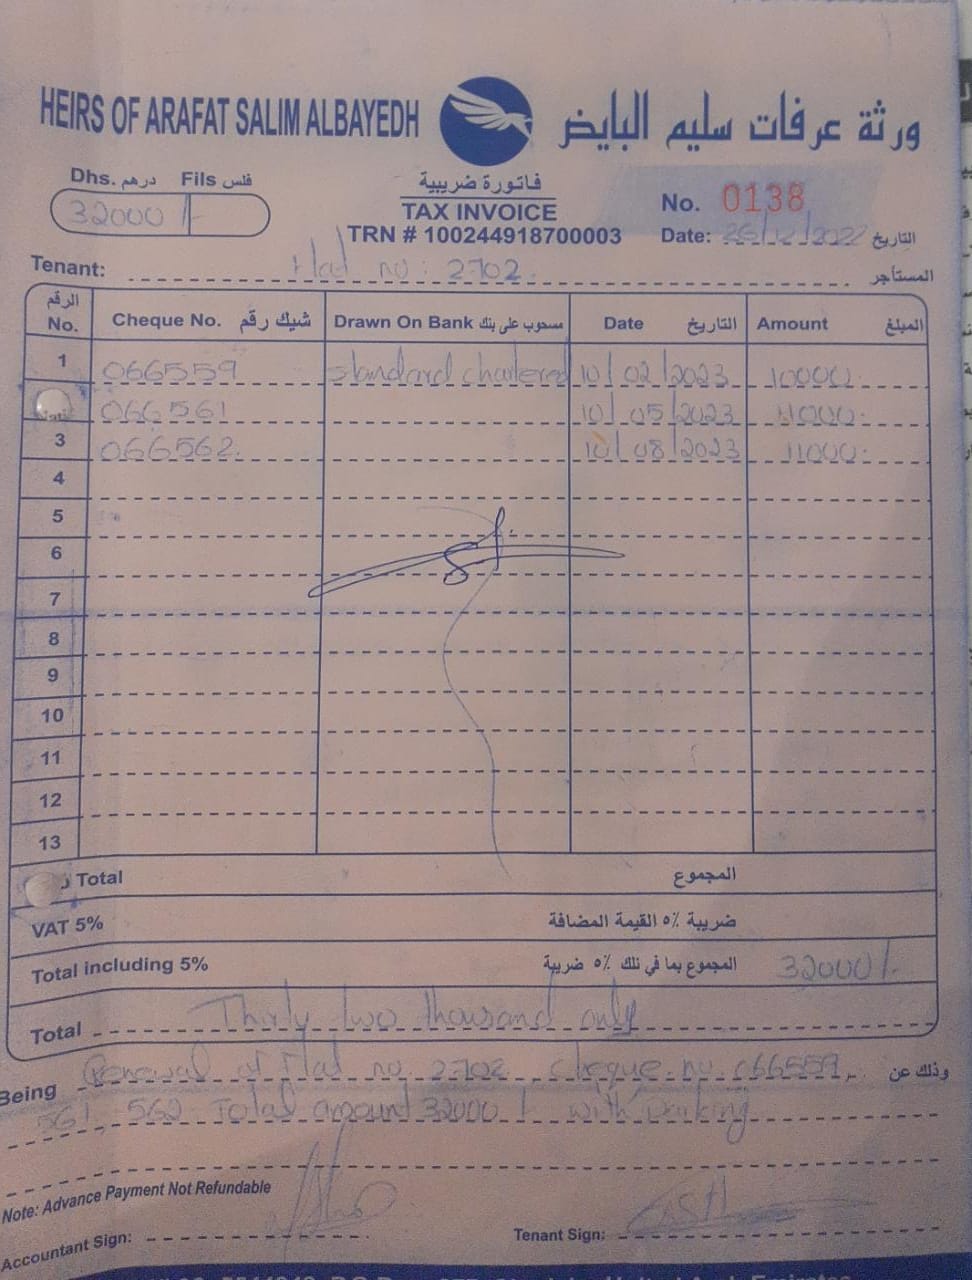 HEIRS OF ARAFAT SALIM ALBAYEDH ورثة عرفات سليم البايض
Dhs. درهم Fils فلس
32000 /-
فاتورة ضريبية
TAX INVOICE
TRN # 100244918700003
No. 0138
Date: 26/12/2022 التاريخ
Tenant: Flat no: 2702. المستأجر
الرقم No. Cheque No. شيك رقم Drawn On Bank مسحوب على بنك Date التاريخ Amount المبلغ
1 066559 standard chartered 10/02/2023 10000.
066561 10/05/2023 11000.
3 066562. 10/08/2023 11000.
4
5
6
7
8
9
10
11
12
13
Total المجموع
VAT 5% ضريبة ٥٪ القيمة المضافة
Total including 5% المجموع بما في ذلك ٥٪ ضريبة 32000/-
Total Thirty two thousand only
Being Renewal of Flat no. 2702. cheque. no. 066559, وذلك عن
561, 562. Total amount 32000 /- with parking
Note: Advance Payment Not Refundable
Accountant Sign: Tenant Sign: